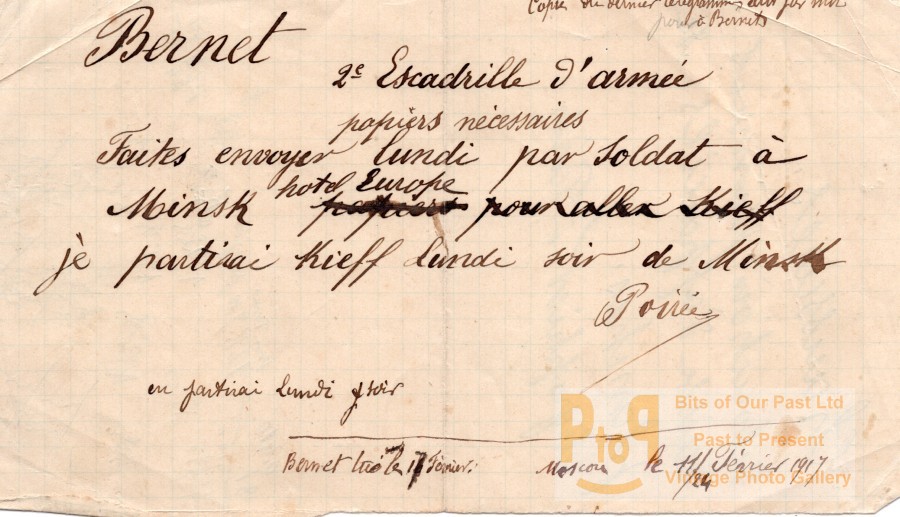 Copie du dernier télégramme écrit par moi
pour à Bernet
Bernet
2e Escadrille d'armée
papiers nécessaires
Faites envoyer lundi par soldat à
hotel Europe
Minsk papiers pour aller Kieff
je partirai Kieff Lundi soir de Minsk
Poirée
en partirai Lundi soir
Bernet tué le 17 Février.
Moscou le 11/24 Février 1917
PtoP
Bits of Our Past Ltd
Past to Present
Vintage Photo Gallery